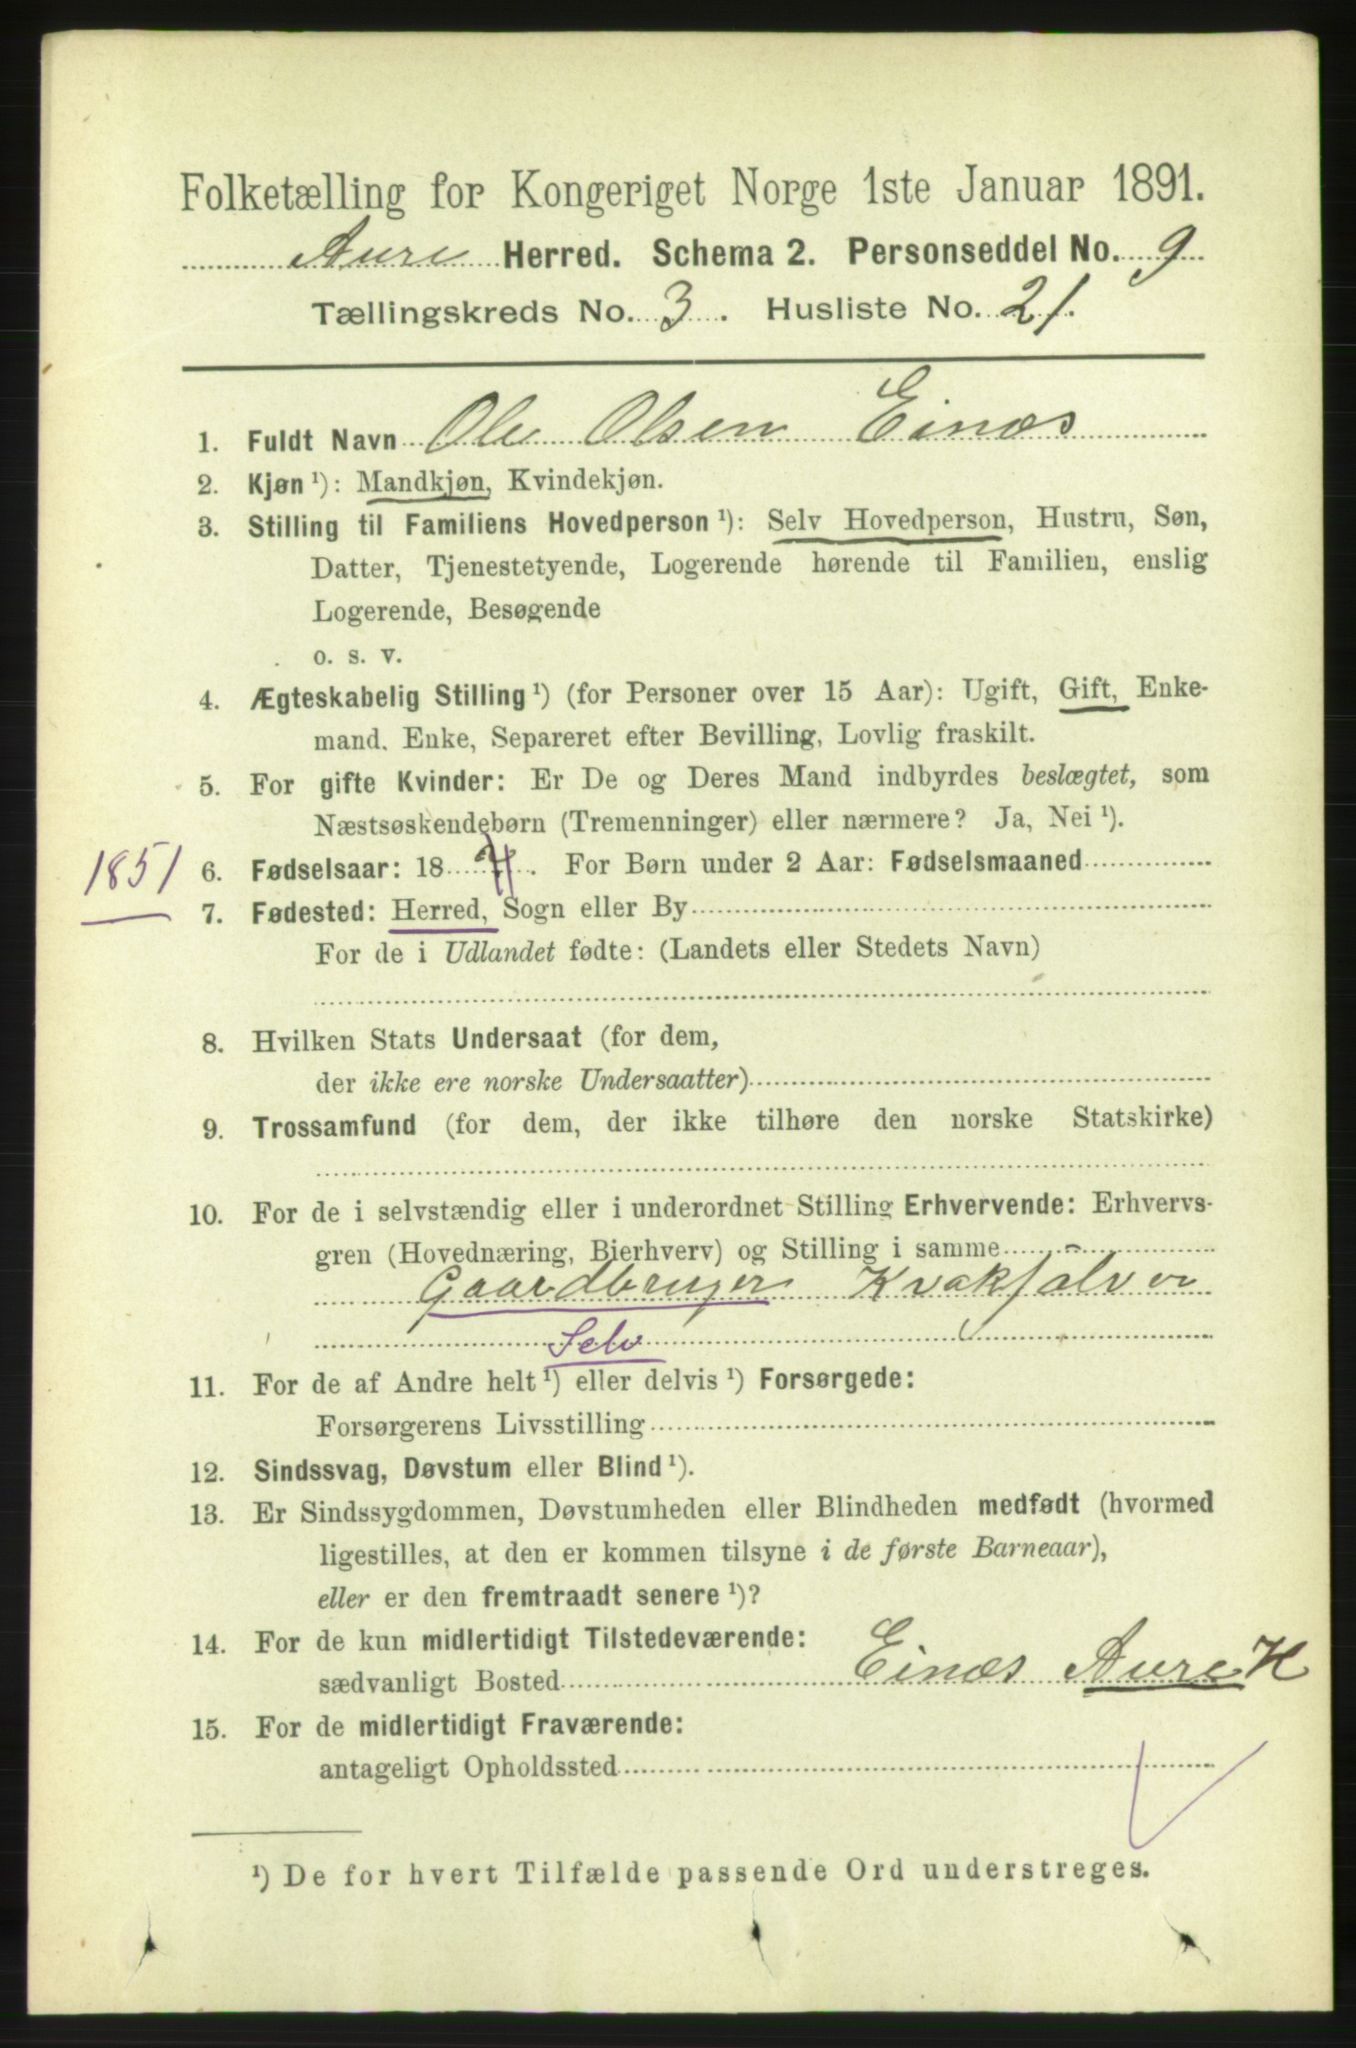 Folketælling for Kongeriget Norge 1ste Januar 1891.
Aure Herred. Schema 2. Personseddel No. 9
Tællingskreds No. 3. Husliste No. 21.
1. Fuldt Navn Ole Olsen Einæs
2. Kjøn ¹): Mandkjøn, Kvindekjøn.
3. Stilling til Familiens Hovedperson ¹): Selv Hovedperson, Hustru, Søn,
Datter, Tjenestetyende, Logerende hørende til Familien, enslig
Logerende, Besøgende
o. s. v.
4. Ægteskabelig Stilling ¹) (for Personer over 15 Aar): Ugift, Gift, Enke-
mand, Enke, Separeret efter Bevilling, Lovlig fraskilt.
5. For gifte Kvinder: Er De og Deres Mand indbyrdes beslægtet, som
Næstsøskendebørn (Tremenninger) eller nærmere? Ja, Nei ¹).
1851
6. Fødselsaar: 18 . For Børn under 2 Aar: Fødselsmaaned
7. Fødested: Herred, Sogn eller By
For de i Udlandet fødte: (Landets eller Stedets Navn)
8. Hvilken Stats Undersaat (for dem,
der ikke ere norske Undersaatter)
9. Trossamfund (for dem, der ikke tilhøre den norske Statskirke)
10. For de i selvstændig eller i underordnet Stilling Erhvervende: Erhvervs-
gren (Hovednæring, Bierhverv) og Stilling i samme
Gaardbruger Kvaksalver
Selv
11. For de af Andre helt ¹) eller delvis ¹) Forsørgede:
Forsørgerens Livsstilling
12. Sindssvag, Døvstum eller Blind ¹).
13. Er Sindssygdommen, Døvstumheden eller Blindheden medfødt (hvormed
ligestilles, at den er kommen tilsyne i de første Barneaar),
eller er den fremtraadt senere ¹)?
14. For de kun midlertidigt Tilstedeværende:
sædvanligt Bosted Einæs Aure H
15. For de midlertidigt Fraværende:
antageligt Opholdssted
¹) De for hvert Tilfælde passende Ord understreges.